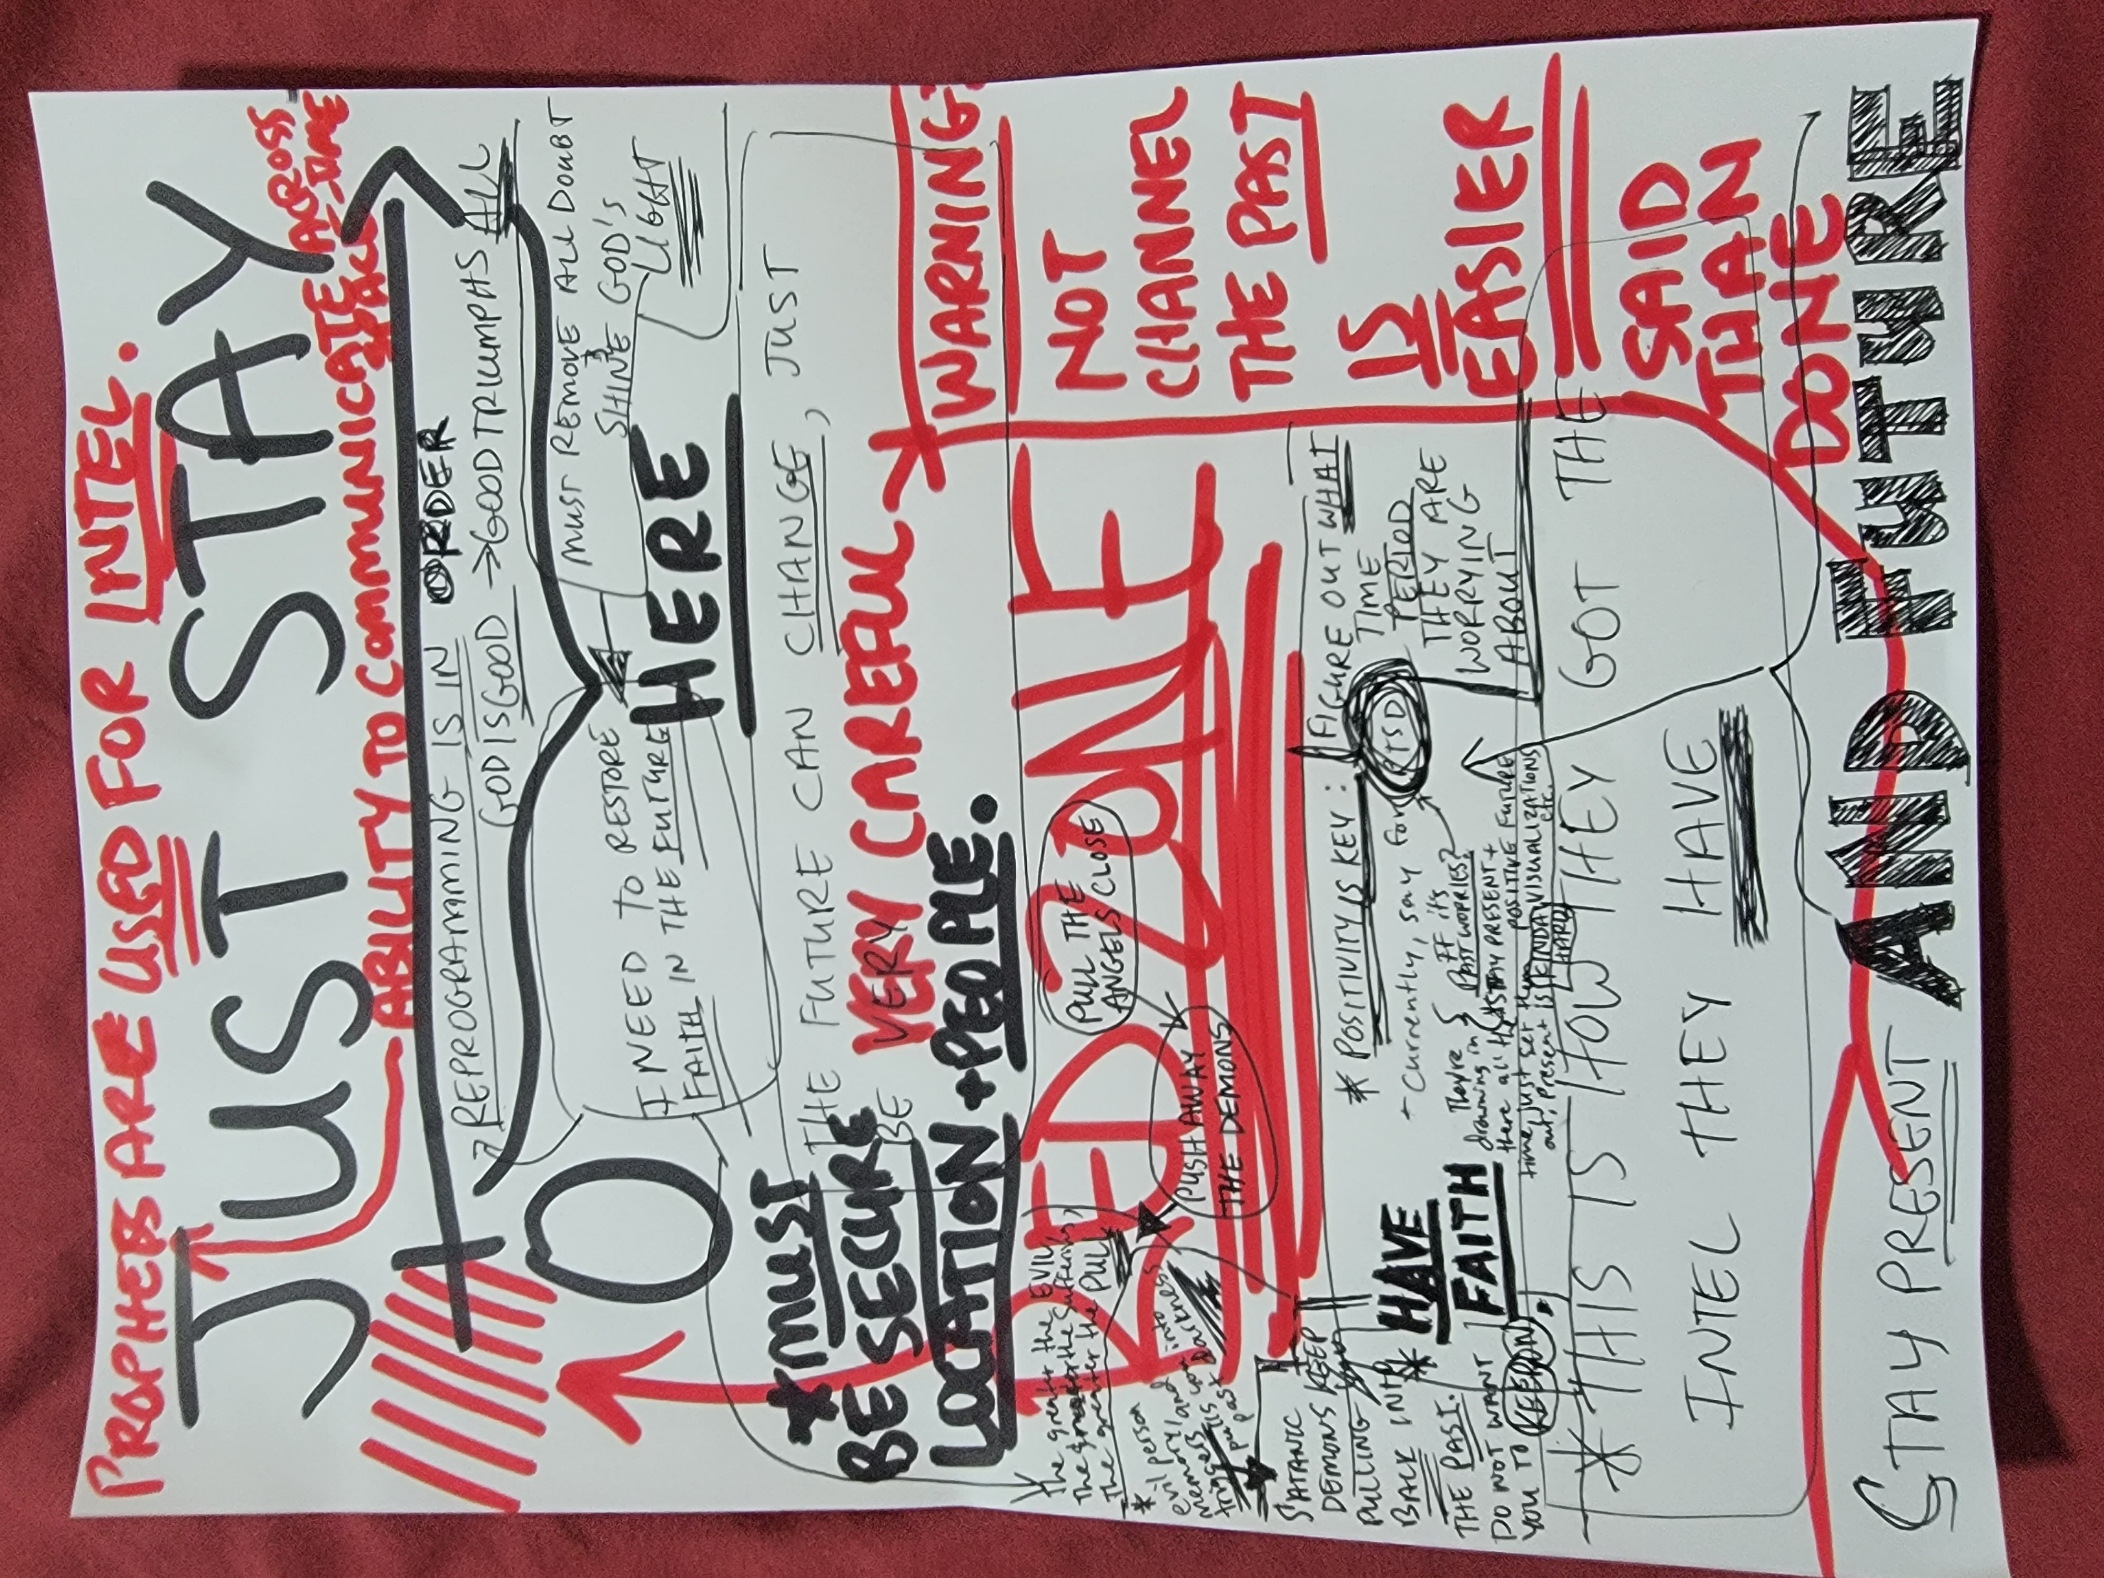 PROPHETS ARE USED FOR INTEL.
JUST STAY
ABILITY TO COMMUNICATE ACROSS
SPACE-TIME
REPROGRAMMING IS IN ORDER
GOD IS GOOD → GOOD TRIUMPHS ALL
O
I NEED TO RESTORE
FAITH IN THE FUTURE
MUST REMOVE ALL DOUBT
SHINE GOD'S
LIGHT
HERE
*MUST
BE SECURE
LOCATION + PEOPLE.
THE FUTURE CAN CHANGE, JUST
BE VERY VERY CAREFUL
WARNING:
NOT
CHANNEL
THE PAST
IS
EASIER
SAID
THAN
DONE
RED ZONE
The greater the EVIL,
The greater the Suffering,
The greater the PULL
* evil person
memory/
triggers and
pulls you into
past darkness
PULL THE
ANGELS CLOSE
PUSH AWAY
THE DEMONS
SATANIC
DEMONS KEEP
PULLING you
BACK INTO
THE PAST.
DO NOT WANT
YOU TO KEEP ON.
* HAVE
FAITH
* POSITIVITY IS KEY:
- Currently, say for PTSD
IF it's
PAST WORRIES?
*STAY PRESENT +
POSITIVE FUTURE
VISUALIZATIONS
etc.
They're
drowning in
there all the
time, just get them
out, Present is KINDA
HARD
FIGURE OUT WHAT
TIME
PERIOD
THEY ARE
WORRYING
ABOUT
* THIS IS HOW THEY GOT THE
INTEL THEY HAVE
STAY PRESENT AND FUTURE